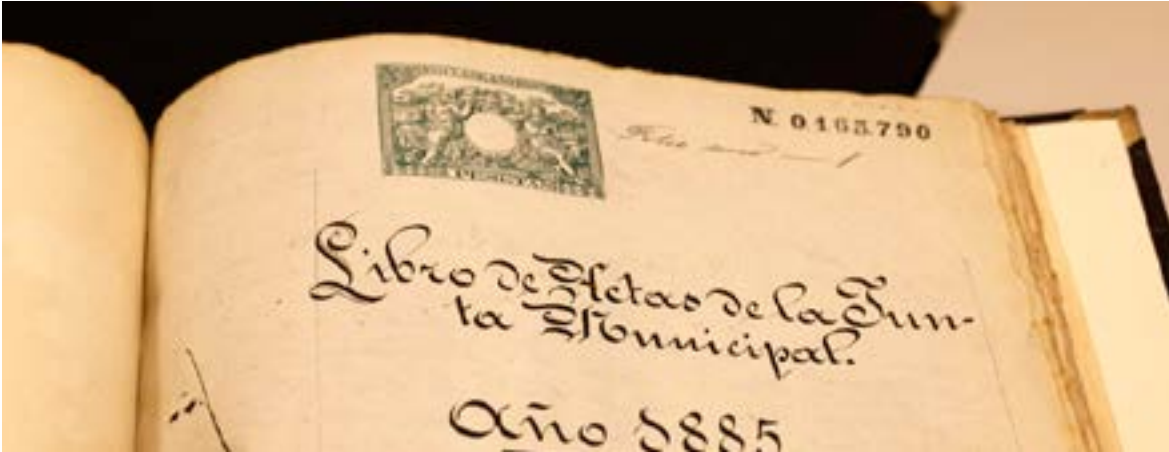 N. 0.163.790
Libro de Actas de la Jun-
ta Municipal.
Año 1885